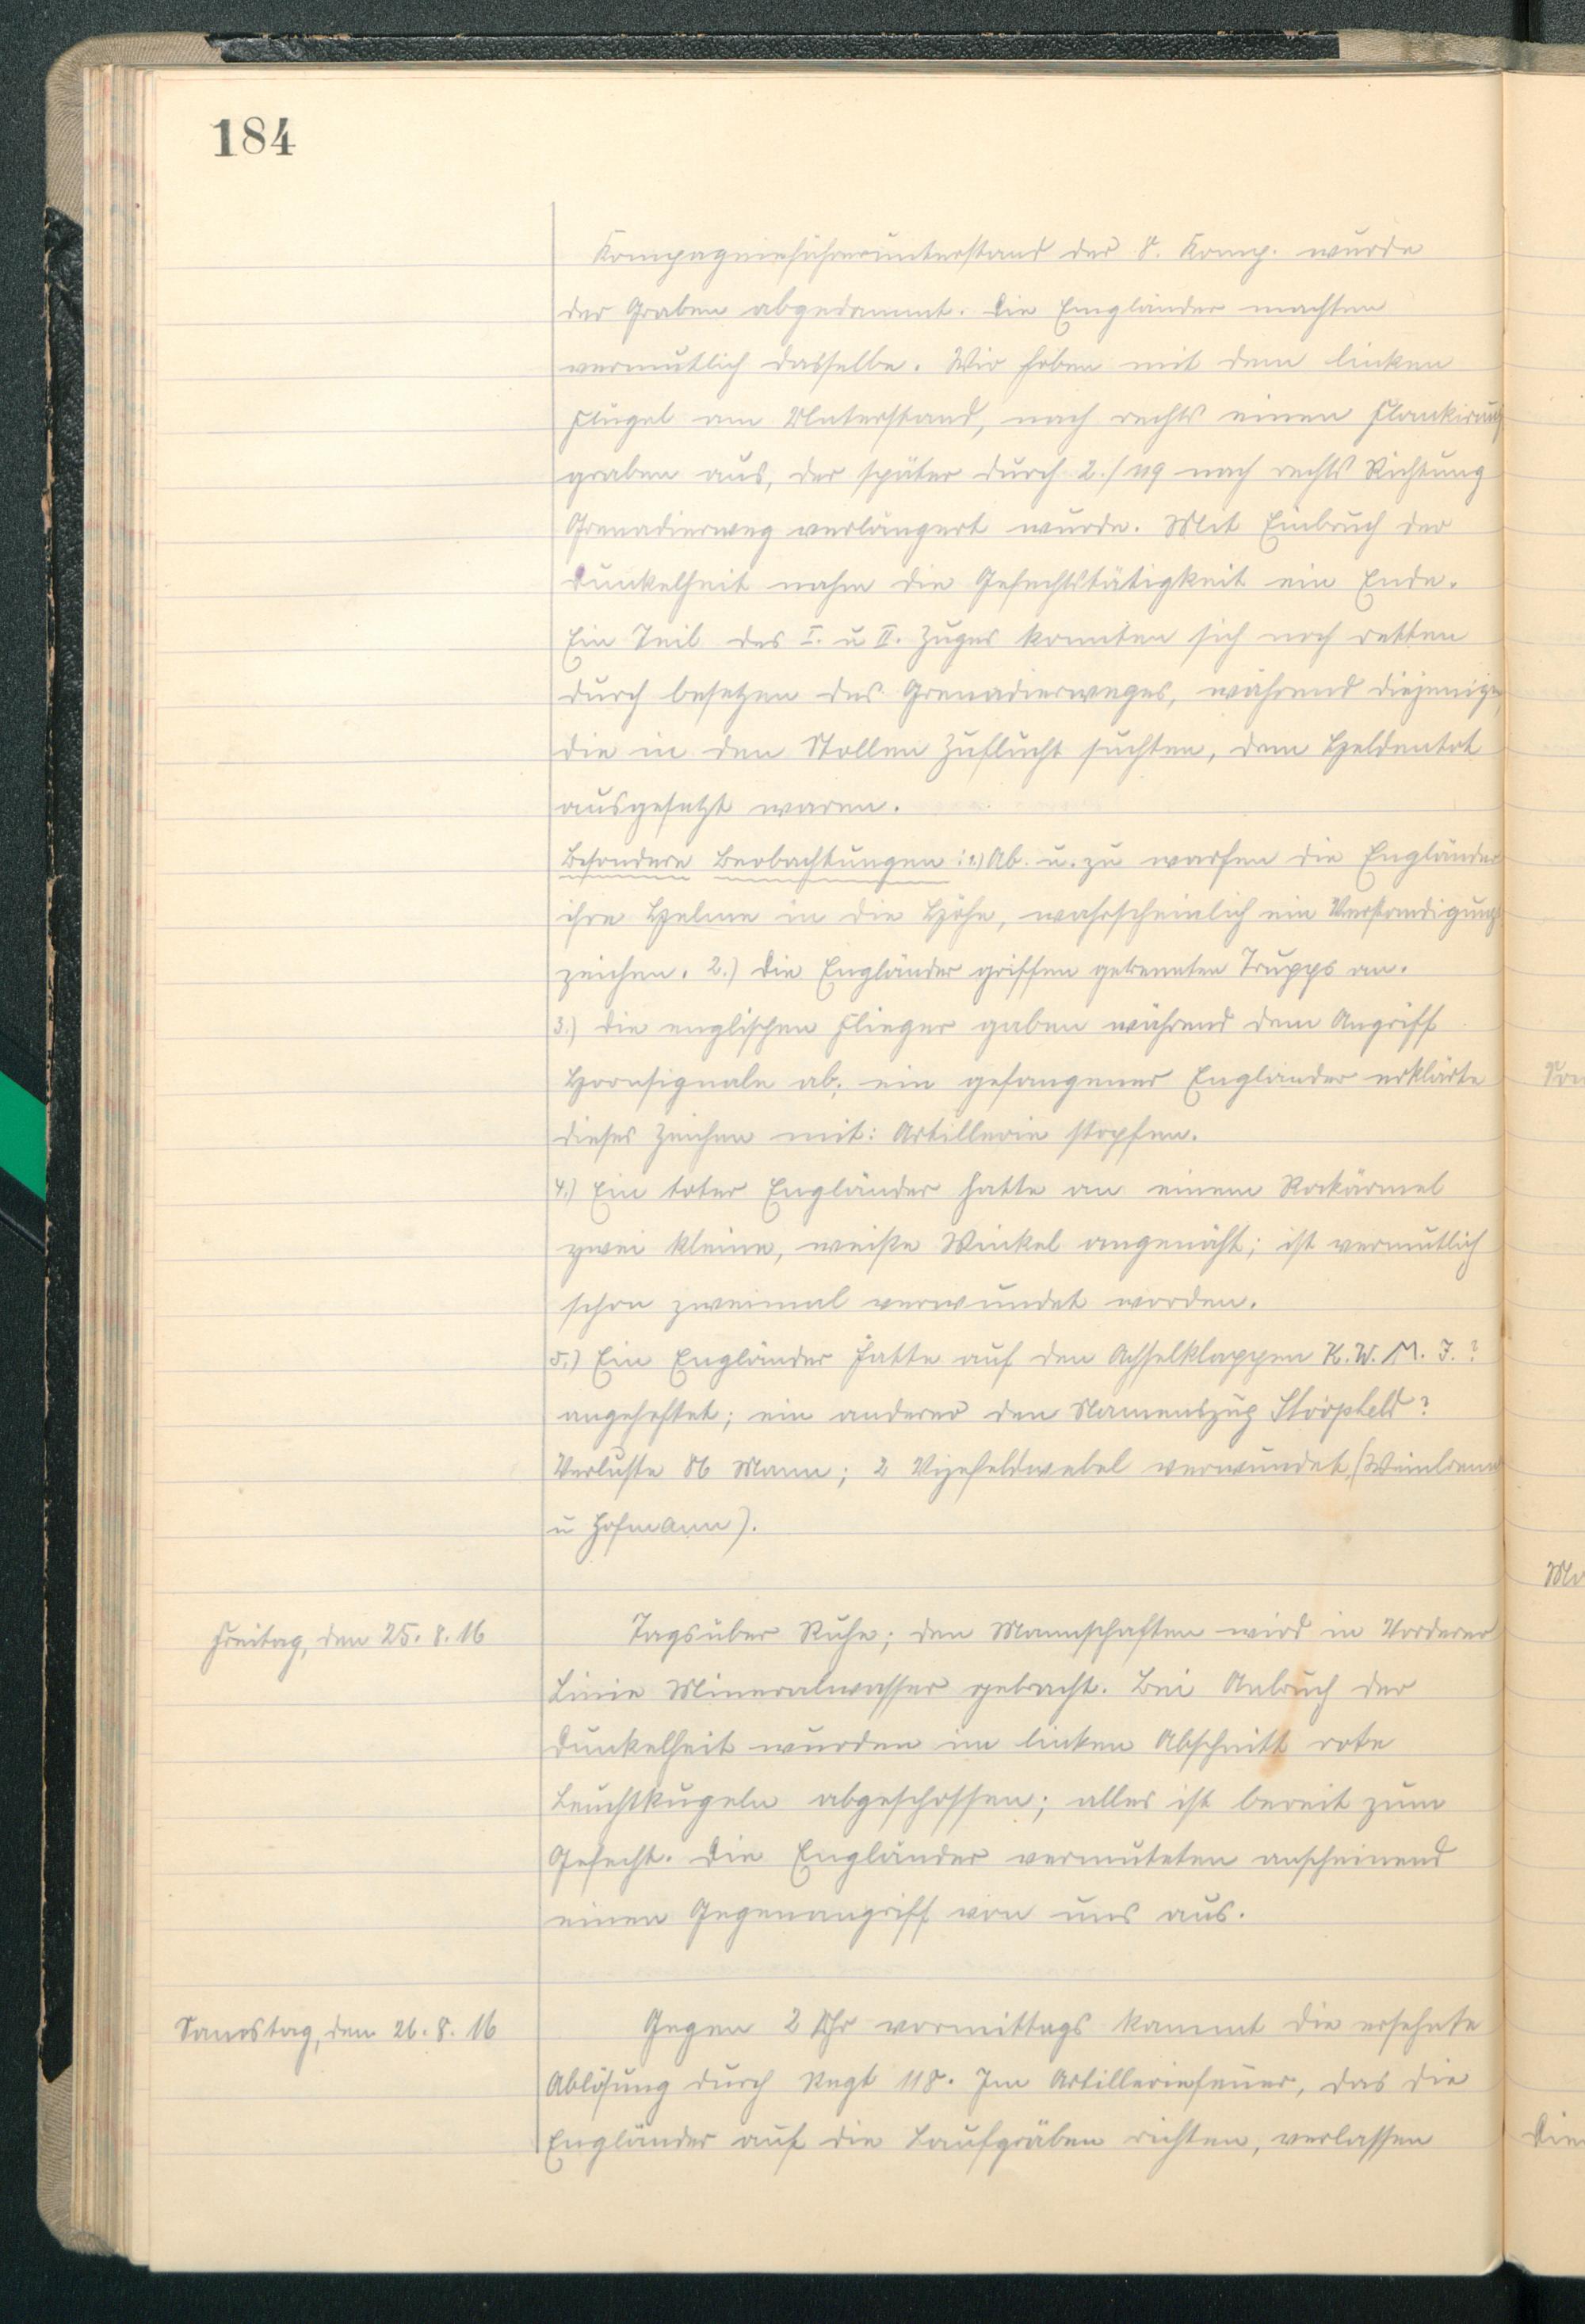 184
Kompagnieführerunterstand der 8. Komp. wurde
der Graben abgedammt. Die Engländer machten
vermutlich dasselbe. Wir hoben mit dem linken
Flügel am Unterstand, nach rechts einen Flankirung
graben aus, der später durch 2./119 nach rechts Richtung
Grenadierweg verlängert wurde. Mit Einbruch der
Dunkelheit nahm die Gefechtstätigkeit ein Ende.
Ein Teil des I. u II. Zuges konnten sich noch retten
durch besetzen des Grenadierweges, während diejenigen
die in den Stollen Zuflucht suchten, dem Heldentot
ausgesetzt waren.
Besondere Beobachtungen: 1.) Ab. u. zu warfen die Engländer
ihre Helme in die Höhe, wahrscheinlich ein Verstandigungs
zeichen. 2.) Die Engländer griffen getrennten Trupps an.
3.) Die englischen Flieger gaben während dem Angriff
Hornsignale ab; ein gefangener Engländer erklärte
dieses Zeichen mit: Artillerie stopfen.
4.) Ein toter Engländer hatte an einem Rockärmel
zwei kleine, weiße Winkel angenäht; ist vermutlich
schon zweimal verwundet worden.
5.) Ein Engländer hatte auf den Achselklappen K. W. M. J. ?
angeheftet; ein anderer den Namenszug ?
Verluste 86 Mann; 2 Vizefeldwebel verwundet, (
u Hofmann).
Freitag, den 25. 8. 16
Tagsüber Ruhe; den Mannschaften wird in Vorderer
Linie Mineralwasser gebracht. Bei Anbruch der
Dunkelheit wurden im linken Abschnitt rote
Leuchtkugeln abgeschossen; alles ist bereit zum
Gefecht. Die Engländer vermuteten anscheinend
einen Gegenangriff von uns aus.
Samstag, den 26. 8. 16
Gegen 2 Uhr vormittags kommt die ersehnte
Ablösung durch Regt 118. Im Artilleriefeuer, das die
Engländer auf die Laufgräben richten, verlassen